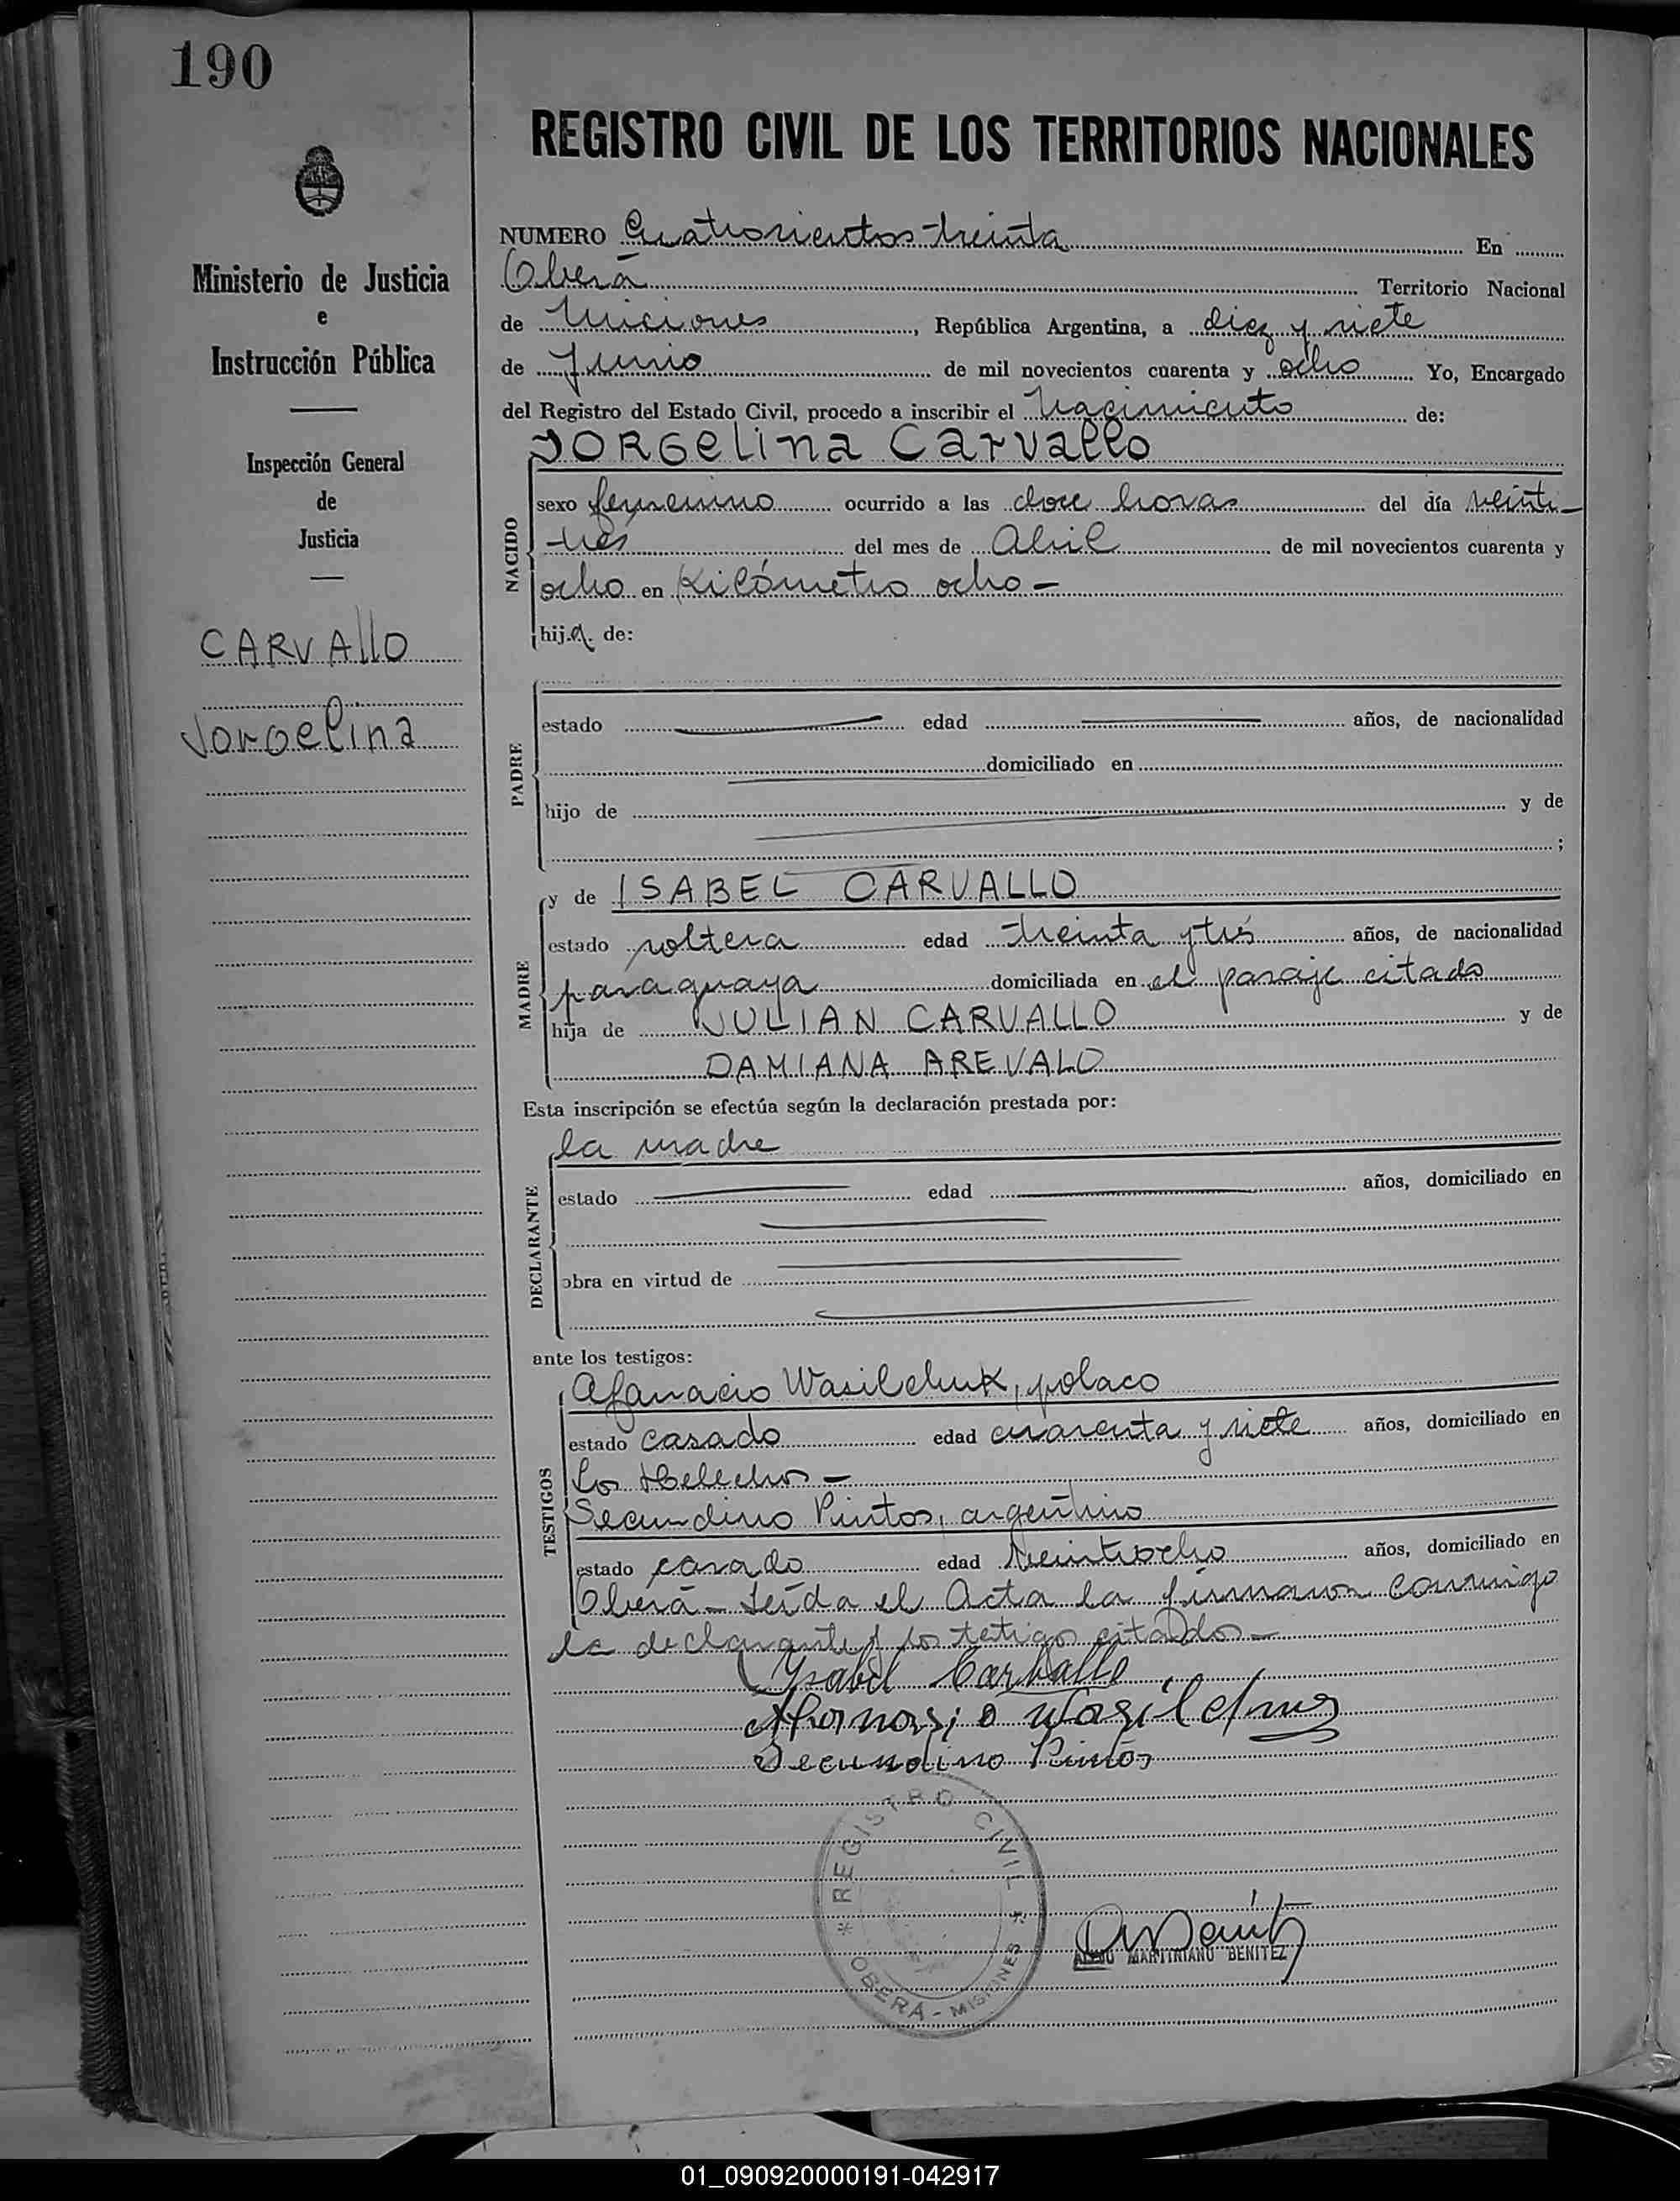 190
REGISTRO CIVIL DE LOS TERRITORIOS NACIONALES
Ministerio de Justicia
e
Instrucción Pública
Inspección General
de
Justicia
CARVAllO
Jorgelina
NUMERO Cuatrocientos treinta En
Oberá Territorio Nacional
de Misiones, República Argentina, a diez y siete
de Junio de mil novecientos cuarenta y ocho Yo, Encargado
del Registro del Estado Civil, procedo a inscribir el Nacimiento de:
JORGelina Carvallo
NACIDO
sexo femenino ocurrido a las doce horas del día veinti-
tres del mes de Abril de mil novecientos cuarenta y
ocho en Kilómetro ocho -
hija de:
PADRE
estado edad años, de nacionalidad
domiciliado en
hijo de y de
;
MADRE
y de ISABEL CARVALLO
estado soltera edad treinta y tres años, de nacionalidad
paraguaya domiciliada en el paraje citado
hija de JULIAN CARVALLO y de
DAMIANA AREVALO
Esta inscripción se efectúa según la declaración prestada por:
la madre
DECLARANTE
estado edad años, domiciliado en
obra en virtud de
ante los testigos:
TESTIGOS
Afanacio Wasilchuk, polaco
estado casado edad cuarenta y siete años, domiciliado en
Los Helechos -
Secundino Pintos, argentino
estado casado edad veintiocho años, domiciliado en
Oberá - Leída el Acta la firmaron conmigo
la declarante y los testigos citados -
Ysabel Carballo
Afanasio
Secundino Pintos
* REGISTRO CIVIL *
OBERÁ - MISIONES
MARTINIANO BENITEZ
01_090920000191-042917